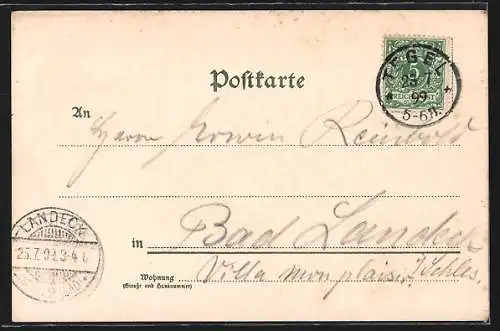 TEGEL
23 7
99
5-6N.
5
REICHSPOST
Postkarte
An
Herrn Erwin Reinbold
LANDECK
25.7.99.3-4N
in Bad Landeck
Villa mon plaisir, Schles.
Wohnung
(Straße und Hausnummer)